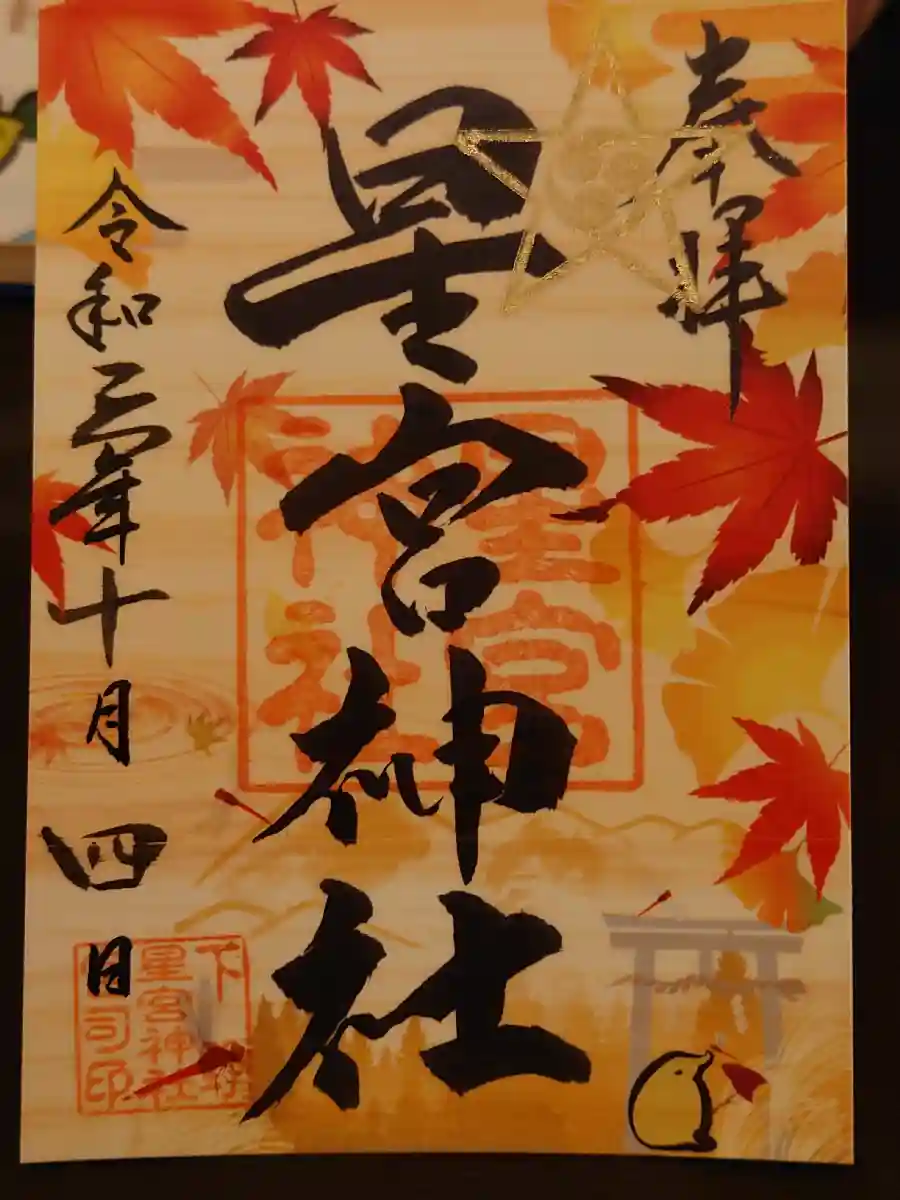 奉拝
星宮神社
令和三年十月四日
星宮
神社
星宮神社
司印